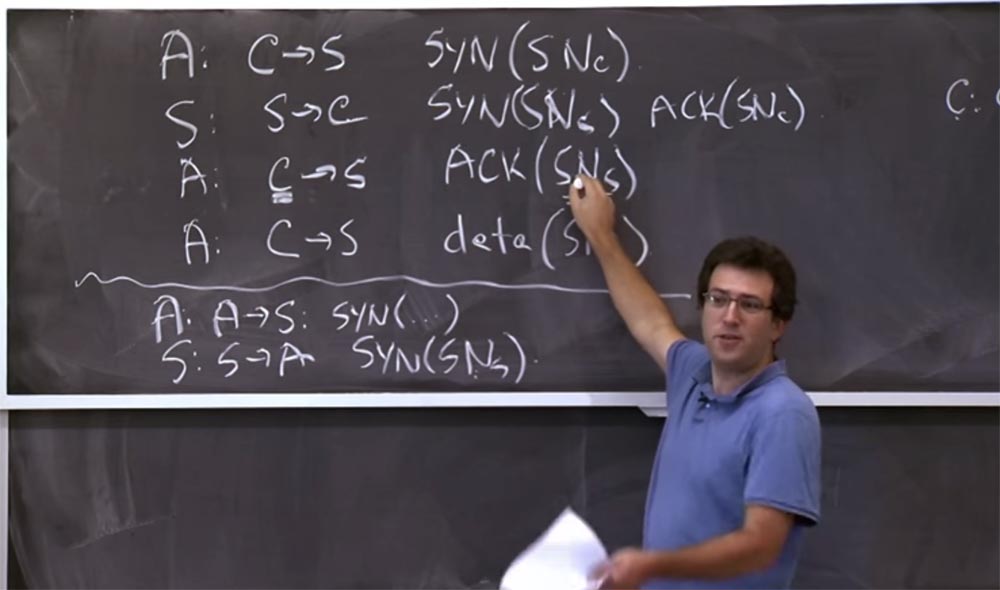 A: C→S SYN(SNc).
S: S→C SYN(SNs) ACK(SNc). C:
A: C→S ACK(SNs)
A: C→S data(S
A: A→S: SYN(...)
S: S→A SYN(SNs).